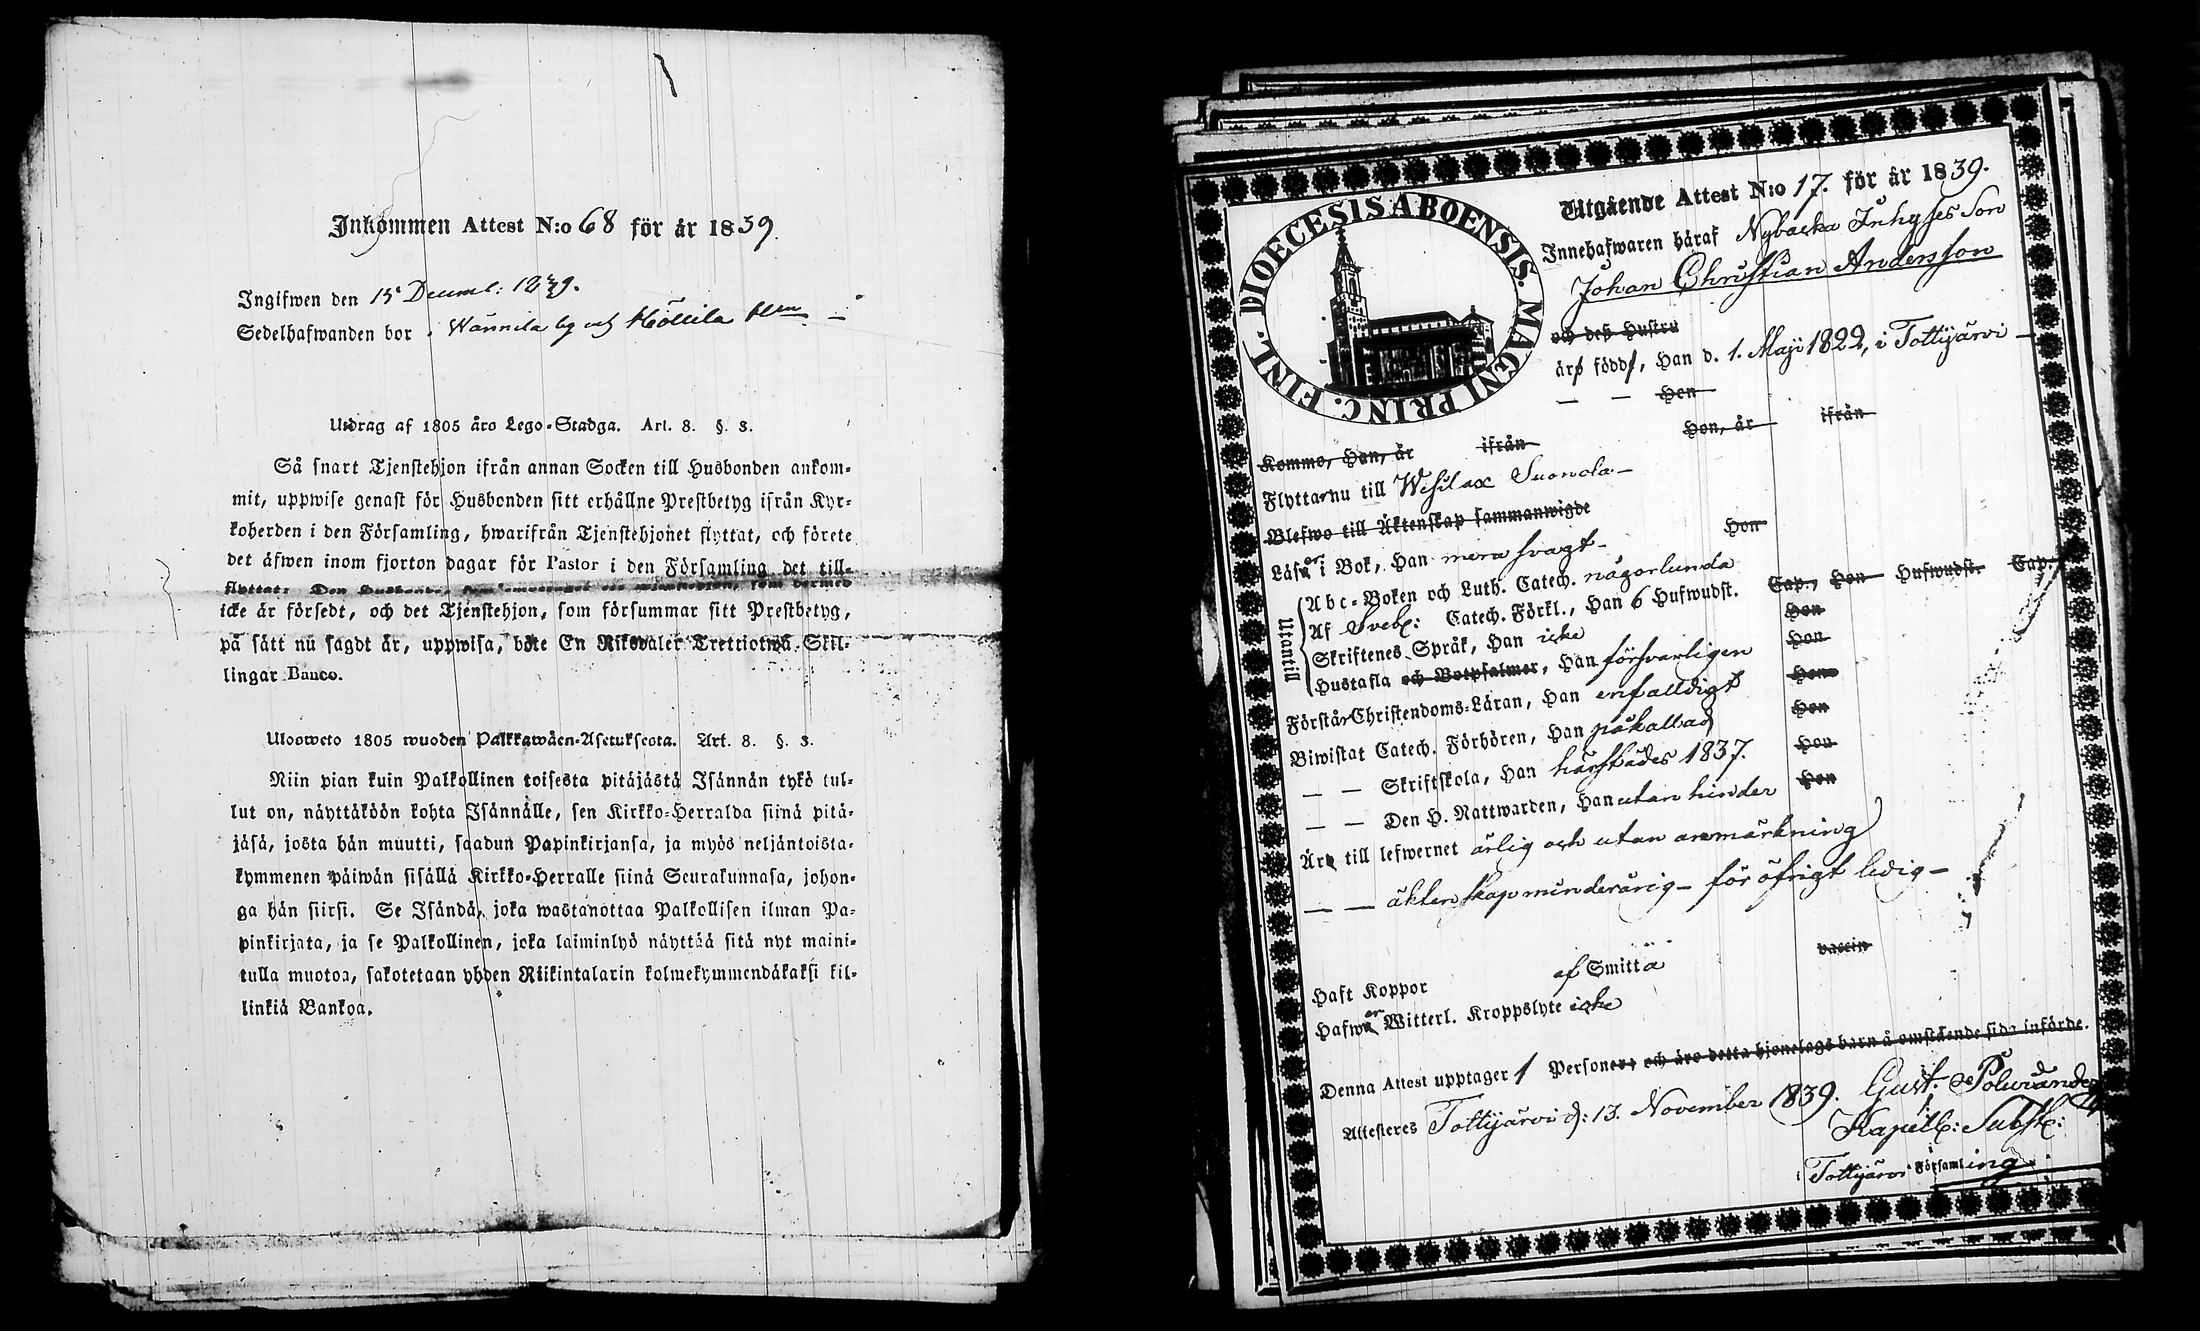 Inkommen Attest N:o 68 för år 1839.
Ingifwen den 15 Decemb: 1839.
Sedelhafwanden bor i Wännilä by och
Utdrag af 1805 års Lego-Stadga. Art. 8. §. 3.
Så snart Tjenstehjon ifrån annan Socken till Husbonden ankom-
mit, uppwise genast för Husbonden sitt erhållne Prestbetyg ifrån Kyr-
koherden i den Församling, hwarifrån Tjenstehjonet flyttat, och förete
det äfwen inom fjorton dagar för Pastor i den Församling det till-
flyttat: Den Husbonde, som dermed
icke är försedt, och det Tjenstehjon, som försummar sitt Prestbetyg,
på sätt nu sagdt är, uppwisa, böte En Riksdaler Trettiotwå Skil-
lingar Banco.
Ulosweto 1805 wuoden Palkkawäen-Asetuksesta. Art. 8. §. 3.
Niin pian kuin Palkollinen toisesta pitäjästä Isännän tykö tul-
lut on, näyttäköön kohta Isännälle, sen Kirkko-Herralda siinä pitä-
jäsä, josta hän muutti, saadun Papinkirjansa, ja myös neljäntoista-
kymmenen päiwän sisällä Kirkko-Herralle siinä Seurakunnasa, johon-
ga hän siirsi. Se Isändä, joka wastanottaa Palkollisen ilman Pa-
pinkirjata, ja se Palkollinen, joka laiminlyö näyttää sitä nyt maini-
tulla muotoa, sakotetaan yhden Riikintalarin kolmekymmendäkaksi kil-
linkiä Bankoa.
DIOECESIS ABOENSIS. MAGNI PRINC. FINL.
Utgående Attest N:o 17. för år 1839.
Innehafwaren häraf Nybacka Inhyses Son
Johan Christian Andersson
och deß Hustru
äro födde, Han d. 1. Maji 1822, i Tottijärvi —
— — Hon
Komme, Han, år ifrån Hon, år ifrån
Flyttar nu till Wesilax Suonola —
Blefwo till Äktenskap sammanwigde
Läser i Bok, Han mera svagt — Hon
Utantill
Abc-Boken och Luth. Catech. någorlunda
Af Sveb: Catech. Förkl., Han 6 Hufwudst. Cap., Hon Hufwudst. Cap.
Skriftenes Språk, Han icke Hon
Hustafla och Botpsalmer, Han försvarligen Hon
Förstår Christendoms-Läran, Han enfalldigt Hon
Biwistat Catech. Förhören, Han påkallad Hon
— — Skriftskola, Han härstädes 1837. Hon
— — Den H. Nattwarden, Han utan hinder Hon
Är till lefwernet ärlig och utan anmärkning
— — äktenskap minderårig — för öfrigt ledig —
Haft Koppor af Smitta vaccin
Hafwer Witterl. Kroppslyte icke
Denna Attest upptager 1 Personer, och äro detta hjonelags barn å omstående sida införde.
Attesteres Tottijärvi d: 13. November 1839. Gust. Polviander
Kapell: Subst:
i Tottijärvi Församling